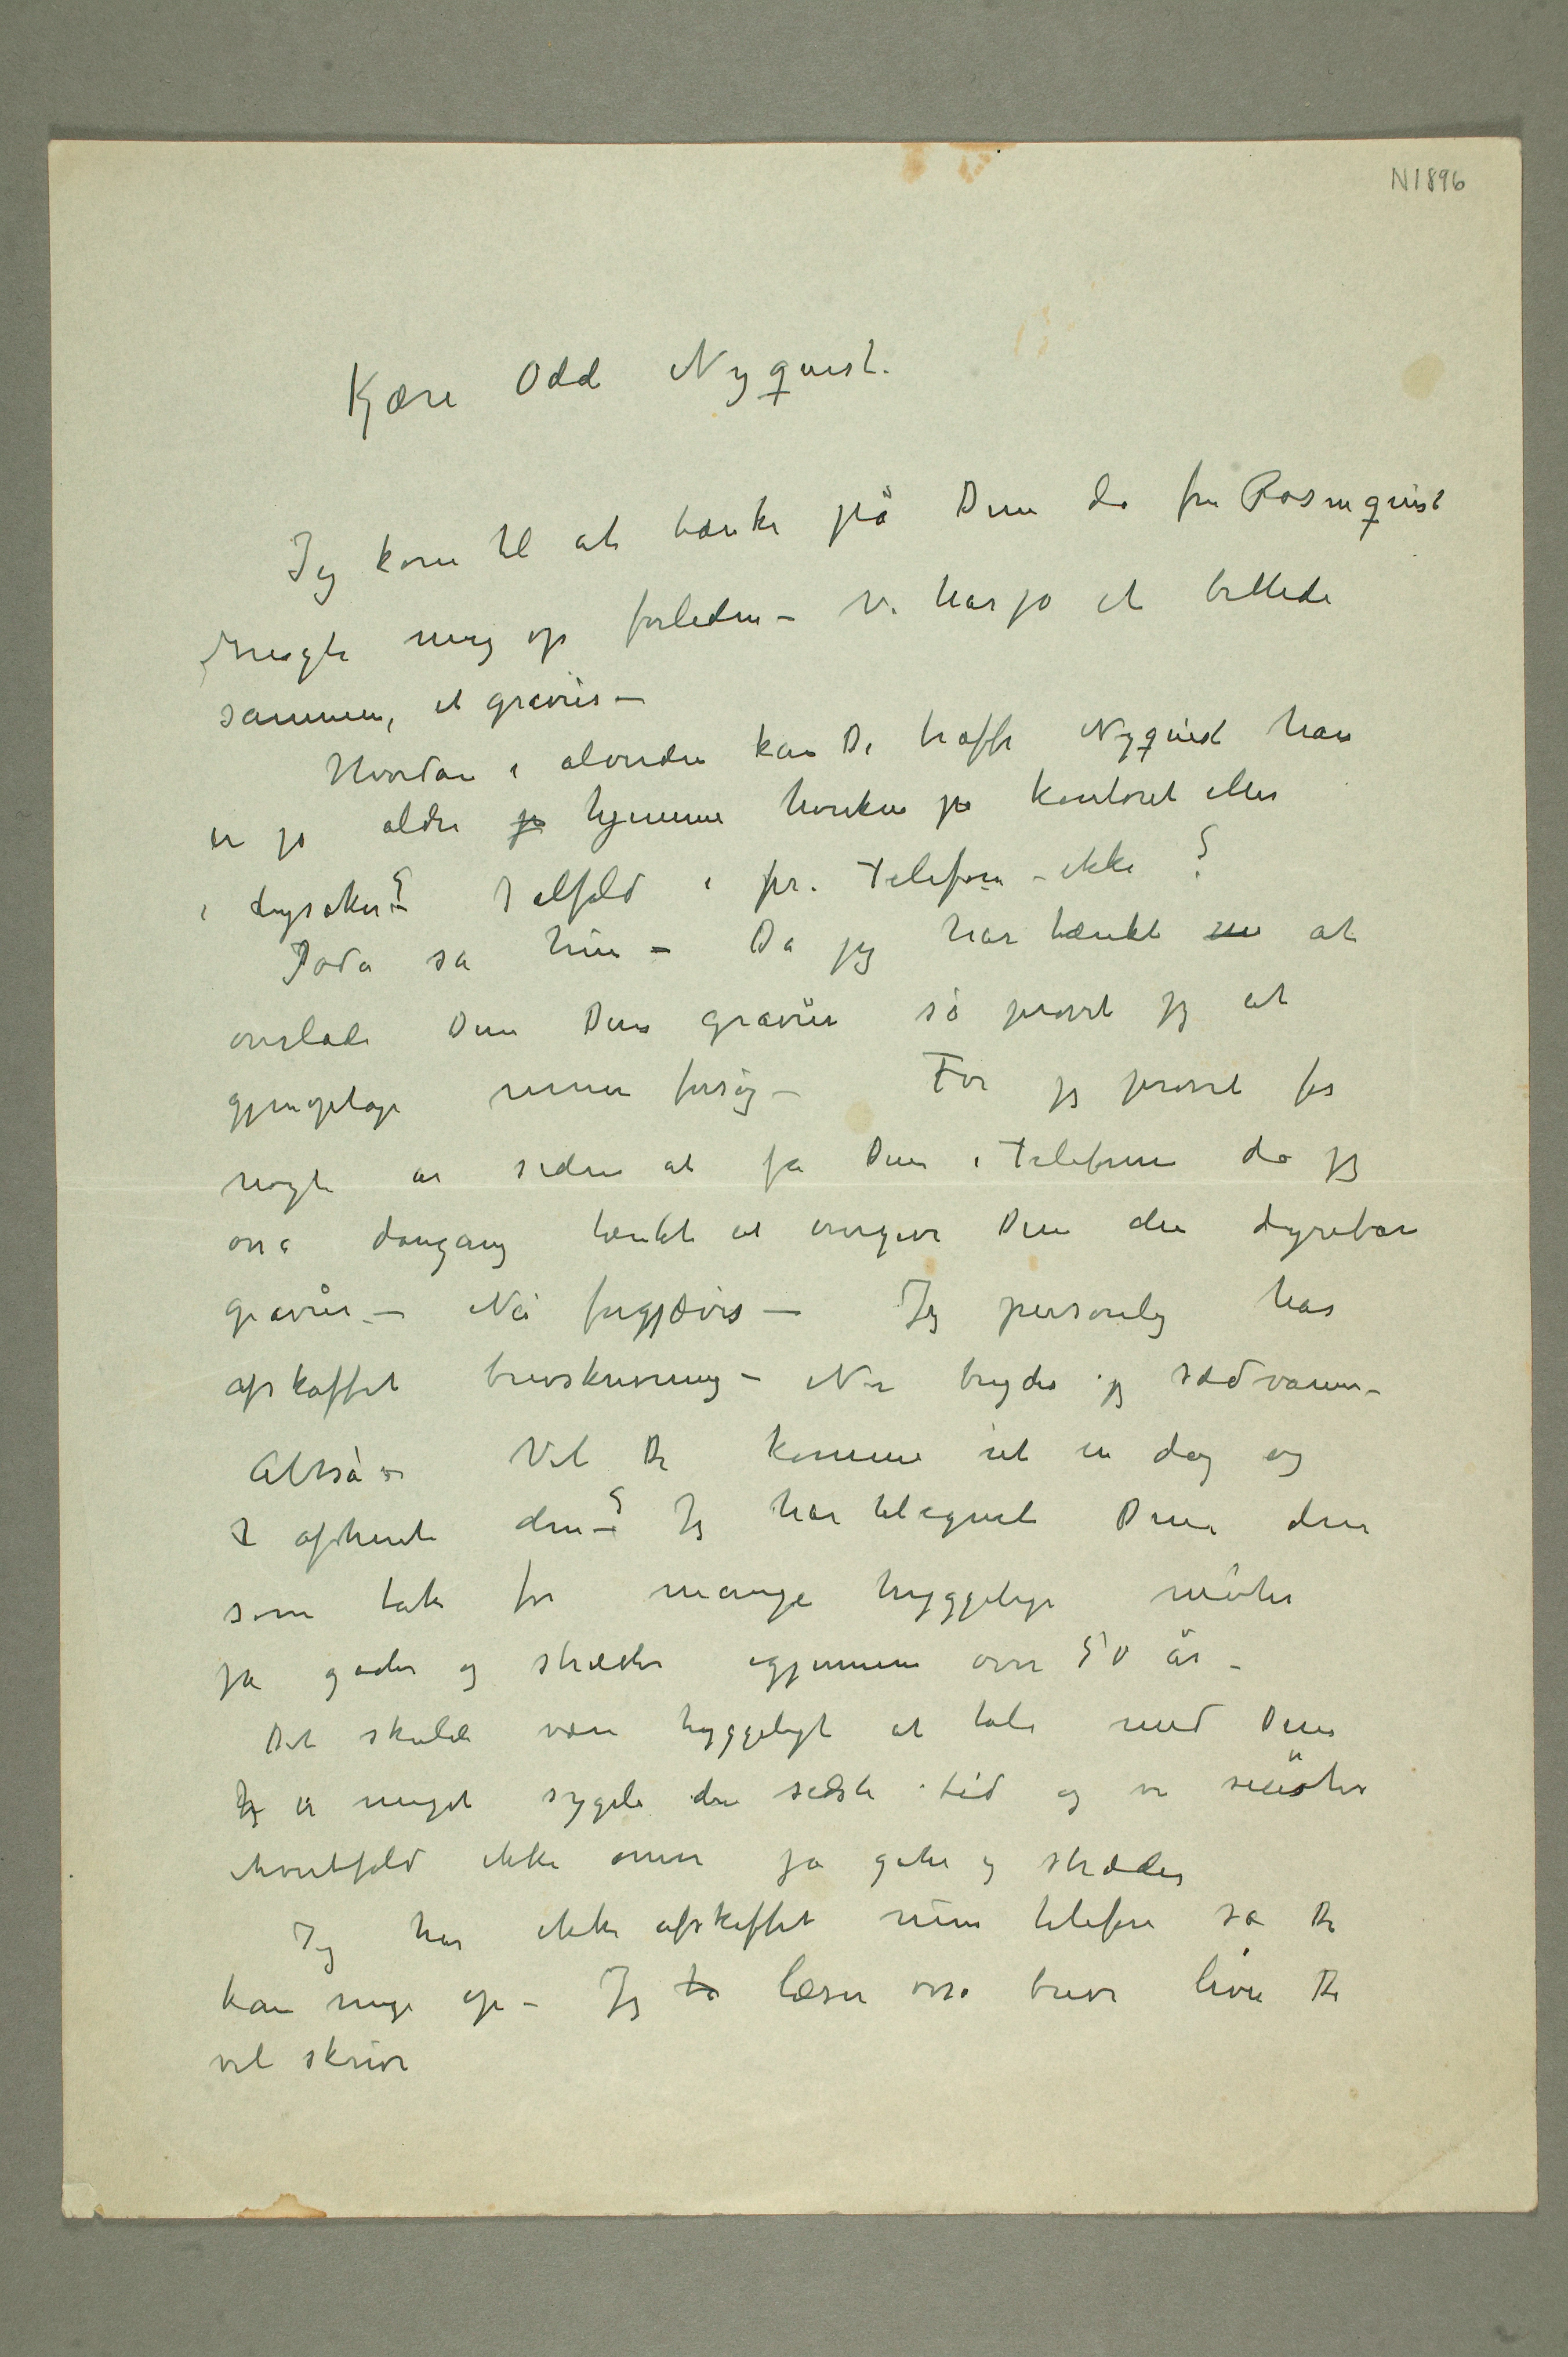 N1896
Kjære Odd Nyquist.
Jeg kom til at tænke på Dem da fru Rosenquist
ringte meg op forleden – Vi har jo et billede
sammen, et gravür –
Hvordan i alverden kan De træffe Nyquist han
er jo aldri på hjemme hverken på kontoret eller
i Lysaker? Ialfald i pr. Telefon – ikke?
Joda sa hun – Da jeg har tænkt at
overlade Dem Deres gravür så prøvet jeg at
gjenoptage mine forsøg – For jeg prøvet for
nogle år siden at få Dem i Telefonen da jeg
også dengang tænkte at overgive Dem den dyrebare
gravür – Nå forgjæves – Jeg personlig har
afskaffet brevskrivning – Nu bryder jeg sædvanen –
Altså – Vil De komme ut en dag og
afhente den –? Jeg har tilegnet Dem den
som tak for mange hyggelige møter
på gader og stræder igjennem over 50 år –
Det skulde være hyggeligt at tale med Dem
Jeg er meget sygelig den sidste tid og vi møter
ihvertfald ikke mere på gater og stræder
Jeg har ikke afskaffet min telefon så De
kan ringe op – Jeg læser også breve hvis De
vil skrive